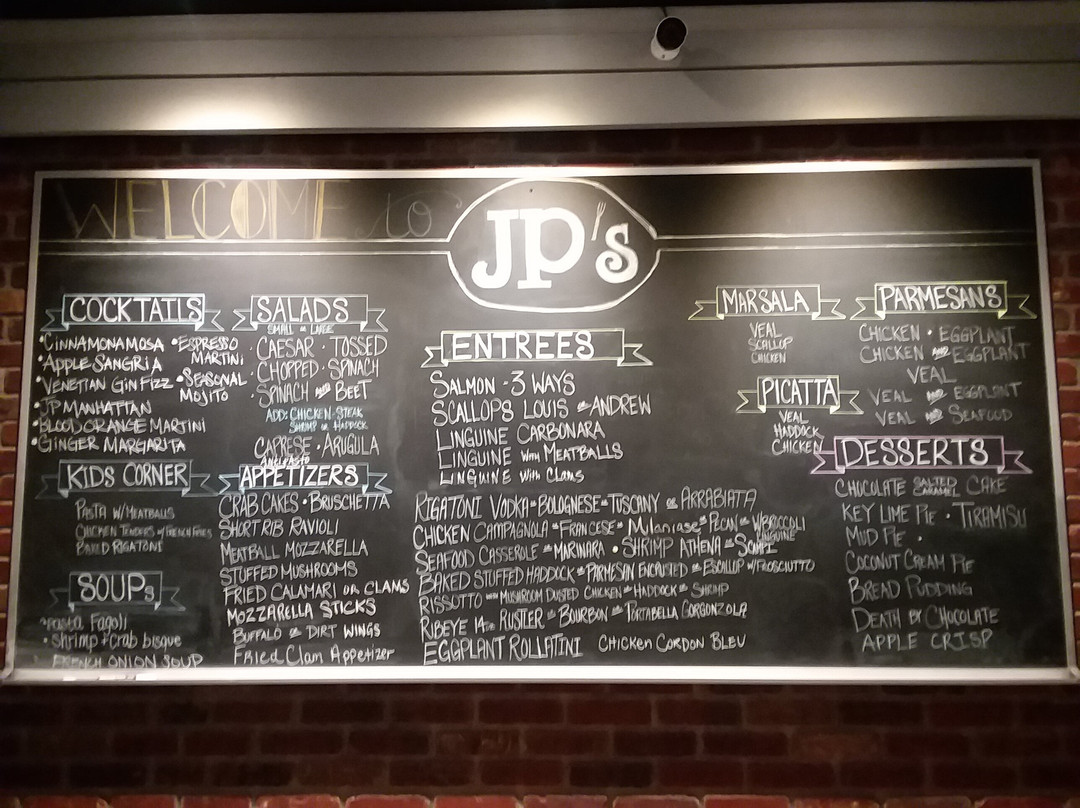 WELCOME to
JP's
COCKTAILS
• CINNAMONAMOSA • ESPRESSO MARTINI
• APPLE SANGRIA
• VENETIAN GIN FIZZ • SEASONAL MOJITO
• JP MANHATTAN
• BLOOD ORANGE MARTINI
• GINGER MARGARITA
KIDS CORNER
PASTA W/MEATBALLS
CHICKEN TENDERS W/FRENCH FRIES
BAKED RIGATONI
SOUPS
• Pasta Fagoli
• Shrimp + Crab bisque
FRENCH ONION SOUP
SALADS
SMALL OR LARGE
CAESAR • TOSSED
CHOPPED • SPINACH
SPINACH AND BEET
ADD: CHICKEN • STEAK
SHRIMP OR HADDOCK
CAPRESE • ARUGULA
ANTIPASTO
APPETIZERS
CRAB CAKES • BRUSCHETTA
SHORT RIB RAVIOLI
MEATBALL MOZZARELLA
STUFFED MUSHROOMS
FRIED CALAMARI OR CLAMS
MOZZARELLA STICKS
BUFFALO OR DIRT WINGS
Fried Clam Appetizer
ENTREES
SALMON • 3 WAYS
SCALLOPS LOUIS OR ANDREW
LINGUINE CARBONARA
LINGUINE WITH MEATBALLS
LINGUINE with Clams
RIGATONI VODKA • BOLOGNESE • TUSCANY OR ARRABIATA
CHICKEN CAMPAGNOLA • FRANCESE • Milaniase • PECAN • W/BROCCOLI LINGUINE
SEAFOOD CASSEROLE OR MARINARA • SHRIMP ATHENA OR SCAMPI
BAKED STUFFED HADDOCK OR PARMESAN ENCRUSTED OR ESCALLOP W/PROSCIUTTO
RISSOTTO WITH MUSHROOM DUSTED CHICKEN OR HADDOCK OR SHRIMP
RIBEYE 14oz RUSTLER OR BOURBON OR PORTABELLA GORGONZOLA
EGGPLANT ROLLATINI CHICKEN CORDON BLEU
MARSALA
VEAL
SCALLOP
CHICKEN
PICATTA
VEAL
HADDOCK
CHICKEN
PARMESANS
CHICKEN • EGGPLANT
CHICKEN AND EGGPLANT
VEAL
VEAL AND EGGPLANT
VEAL AND SEAFOOD
DESSERTS
CHOCOLATE SALTED CARAMEL CAKE
KEY LIME PIE • TIRAMISU
MUD PIE •
COCONUT CREAM PIE
BREAD PUDDING
DEATH BY CHOCOLATE
APPLE CRISP